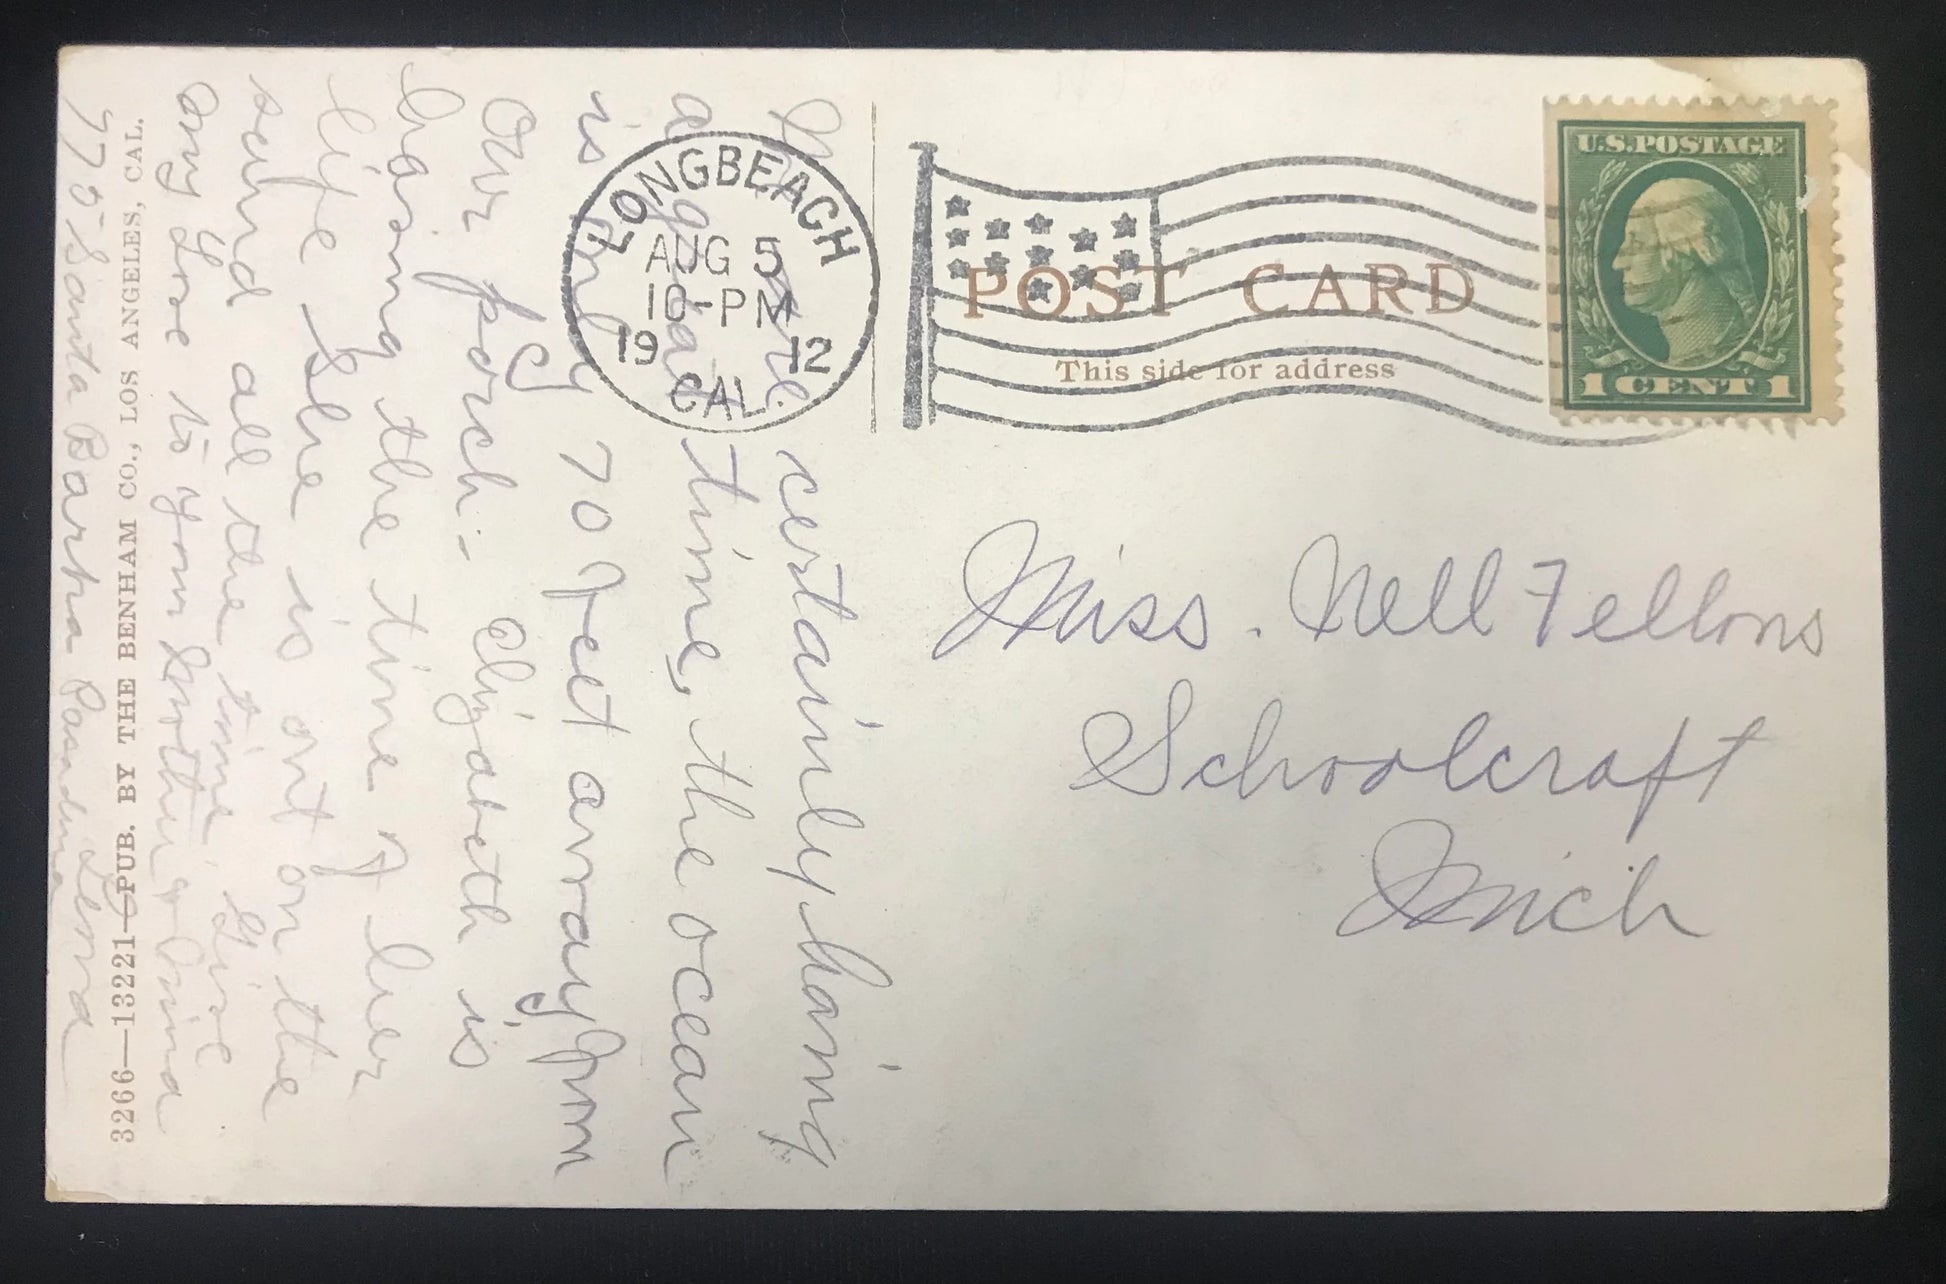 We are certainly having
a great time, the ocean
is only 70 feet away from
our porch - Elizabeth is
having the time of her
life she is out on the
sand all the time. Give
my love to your Mother &
775 Santa Barbara Pasadena
3266—13221—PUB. BY THE BENHAM CO., LOS ANGELES, CAL.
LONG BEACH
AUG 5
10-PM
1912
CAL.
POST CARD
This side for address
U.S. POSTAGE
1 CENT 1
Miss. Nell Fellows
Schoolcraft
Mich